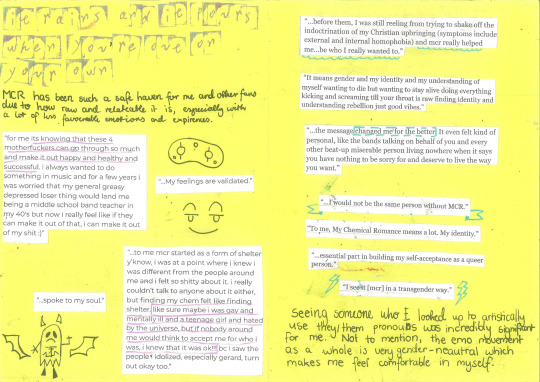 it rains and it pours
when you're out on
your own
MCR has been such a safe haven for me and other fans
due to how raw and relateable it is, especially with
a lot of less favourable emotions and expirences.
"for me its knowing that these 4
motherfuckers can go through so much
and make it out happy and healthy and
successful. i always wanted to do
something in music and for a few years i
was worried that my general greasy
depressed loser thing would land me
being a middle school band teacher in
my 40's but now i really feel like if they
can make it out of that, i can make it out
of my shit :)"
"...My feelings are validated."
"...spoke to my soul."
"...to me mcr started as a form of shelter
y'know, i was at a point where i knew i
was different from the people around
me and i felt so shitty about it. i really
couldn't talk to anyone about it either,
but finding my chem felt like finding
shelter, like sure maybe i was gay and
mentally ill and a teenage girl and hated
by the universe, but if nobody around
me would think to accept me for who i
was, i knew that it was ok!!! bc i saw the
people i idolized, especially gerard, turn
out okay too."
"...before them, I was still reeling from trying to shake off the
indoctrination of my Christian upbringing (symptoms include
external and internal homophobia) and mcr really helped
me...be who I really wanted to."
"It means gender and my identity and my understanding of
myself wanting to die but wanting to stay alive doing everything
kicking and screaming till your throat is raw finding identity and
understanding rebellion just good vibes."
"...the message changed me for the better. It even felt kind of
personal, like the bands talking on behalf of you and every
other beat-up miserable person living nowhere when it says
you have nothing to be sorry for and deserve to live the way
you want."
"...I would not be the same person without MCR."
"To me, My Chemical Romance means a lot. My identity."
"...essential part in building my self-acceptance as a queer
person."
"I see it [mcr] in a transgender way."
Seeing someone who I looked up to artistically
use they/them pronouns was incredibly significant
for me. Not to mention, the emo movement
as a whole is very gender-neautral which
makes me feel comfortable in myself.